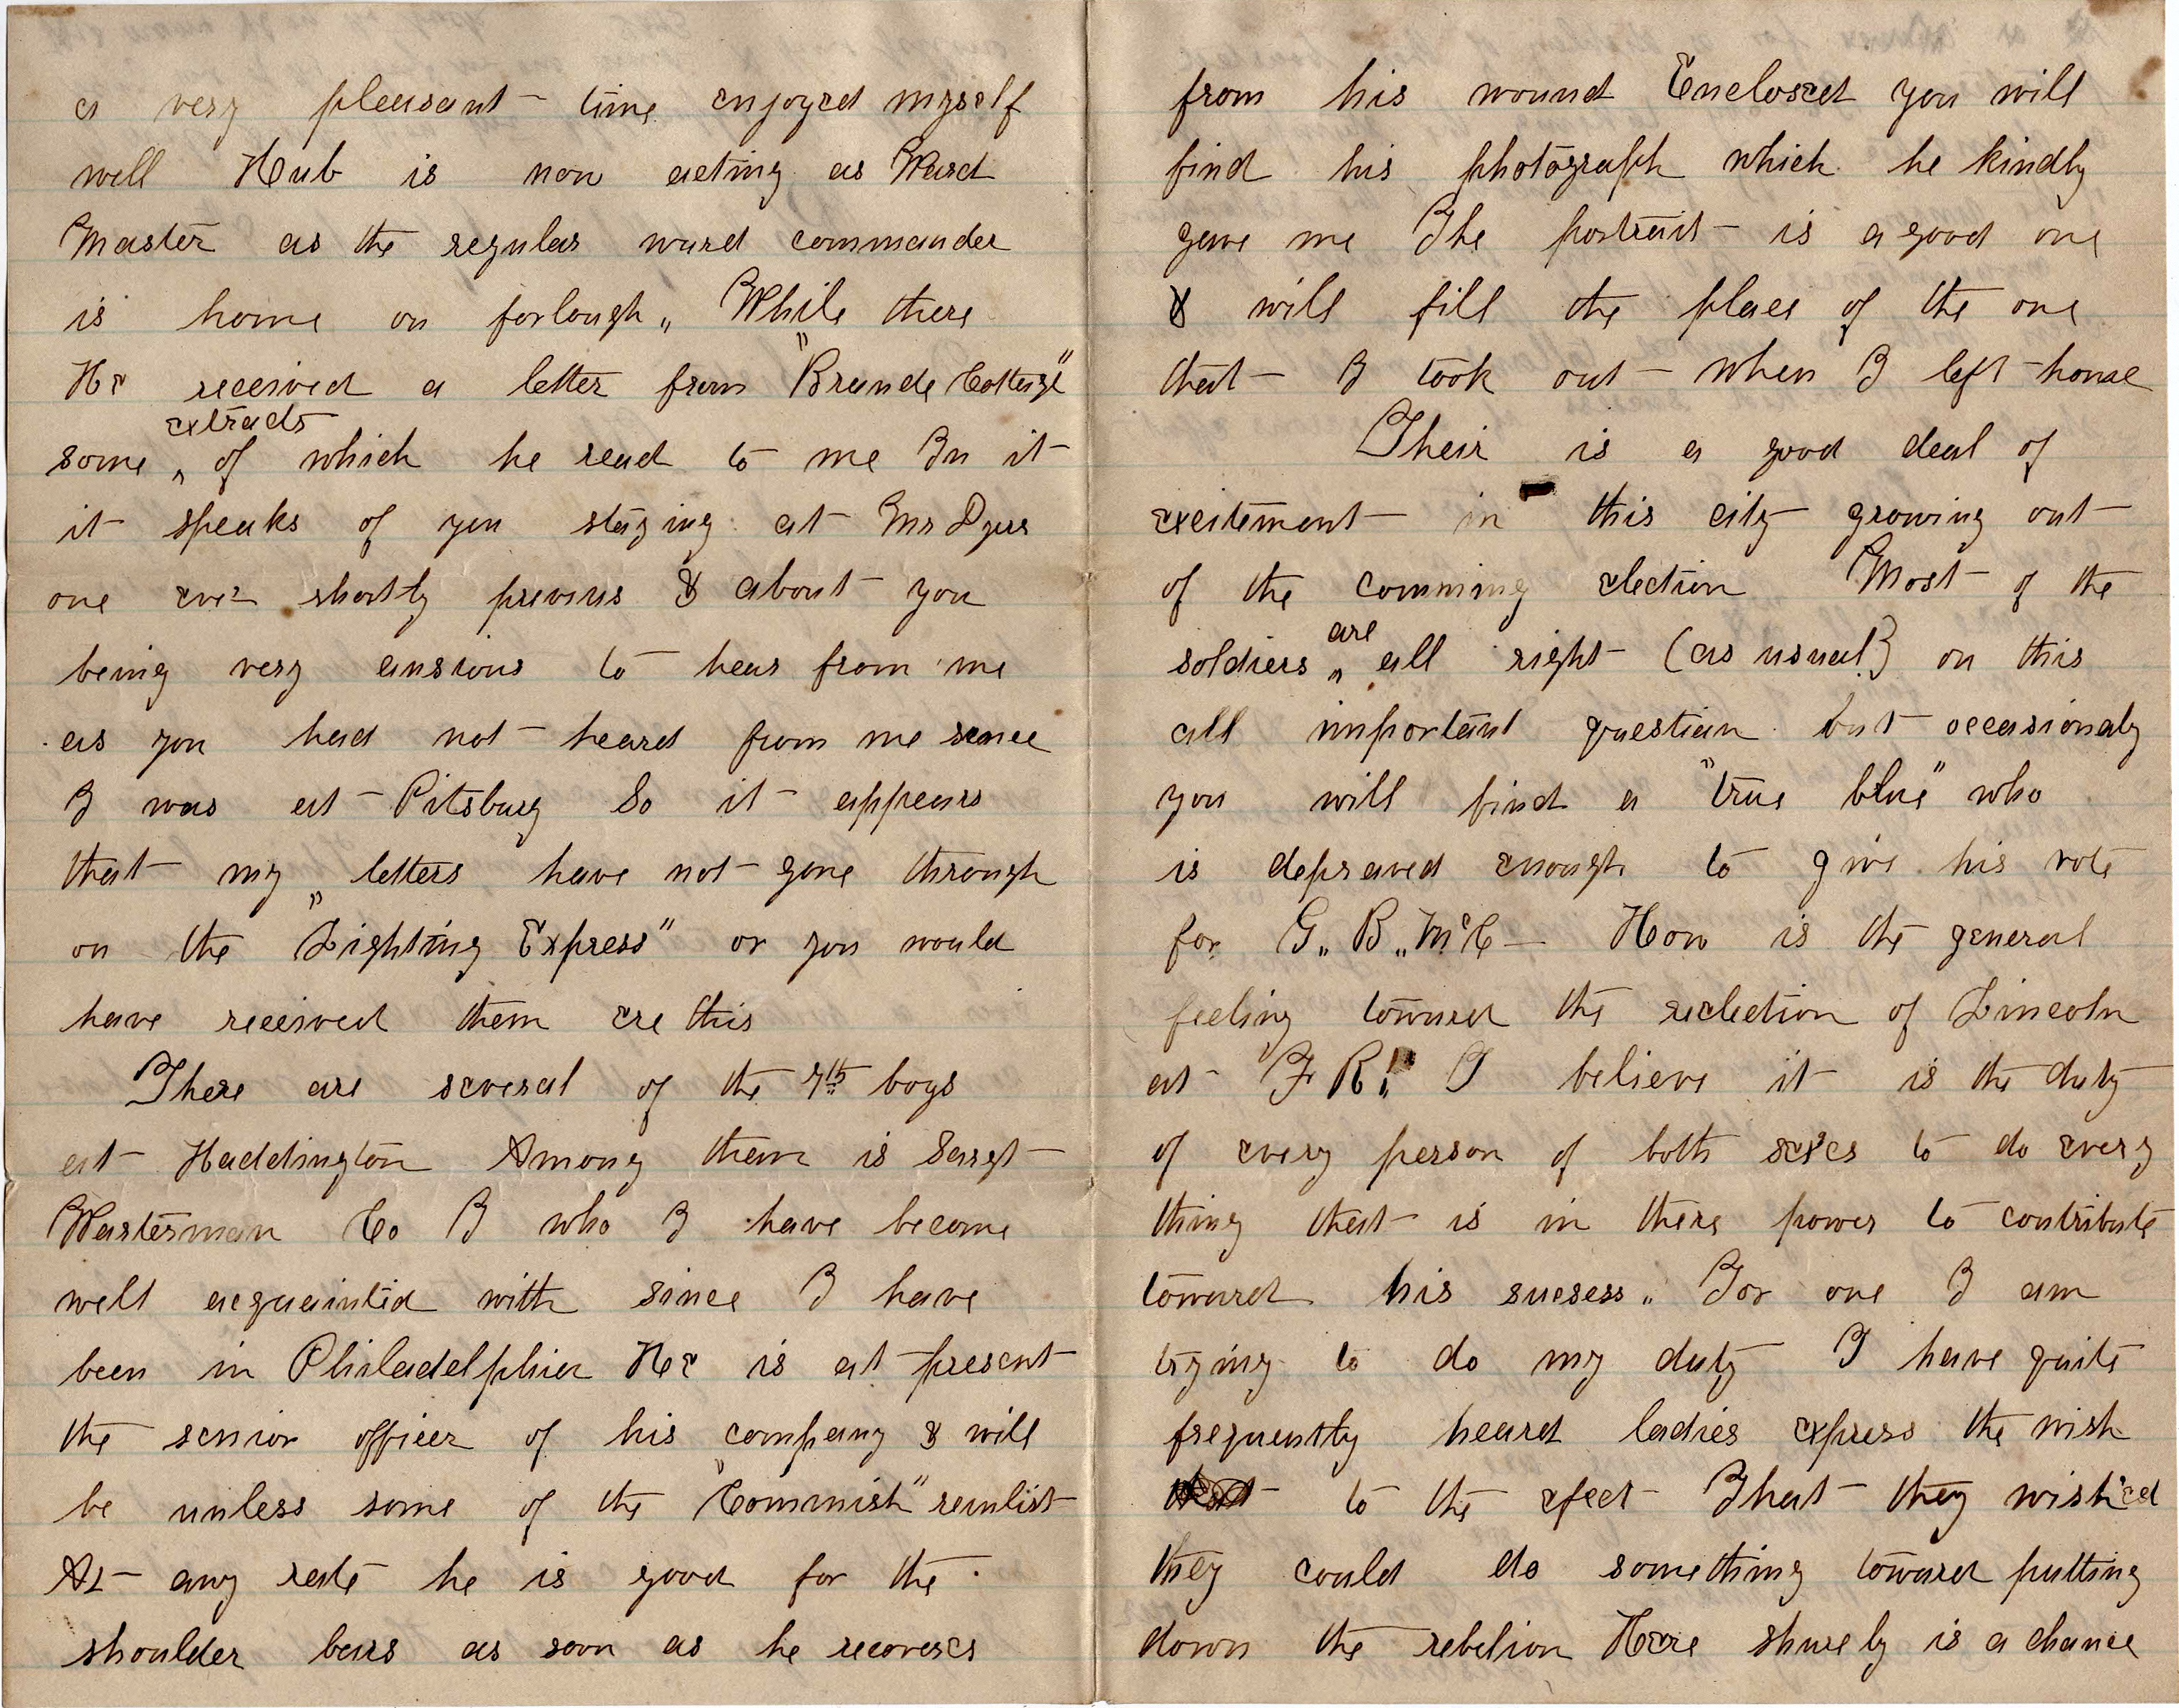 a very pleasant time enjoyed myself
well Hub is now acting as Ward
Master as the regular ward commander
is home on forlough „ While there
He received a letter from "Brunde Cottage"
extracts
some „ of which he read to me In it
it speaks of you staying at Mr Dyers
one eve shortly previus & about you
being very ansious to hear from me
as you had not heard from me sence
I was at Pitsburg So it appears
that my letters have not gone through
on the "Lighting Express" or you would
have received them ere this
There are several of the 7th boys
at Haddington Among them is Sargt
Wasterman Co I who I have become
well acquaintid with since I have
been in Philadelphia He is at present
the senior officer of his company & will
be unless some of the "Commish" reinlist
At any rate he is good for the
shoulder bars as soon as he recoveres
from his wound Enclosed you will
find his photograph which he kindly
gave me The portrait is a good one
& will fill the place of the one
that I took out when I left home
Their is a good deal of
excitement in this city growing out
of the comming election Most of the
are
soldiers „ all right (as usual!) on this
all important question but occasionaly
you will find a "true blue" who
is depraved enough to give his vote
for G„ B„ McC— How is the general
feeling toward the reelection of Lincoln
at F R! I believe it is the duty
of every person of both sexes to do every
thing that is in there power to contribute
toward his sucsess„ For one I am
trying to do my duty I have quite
frequently heard ladies express the wish
to the efect That they wished
they could do something toward putting
down the rebelion Here shurely is a chance